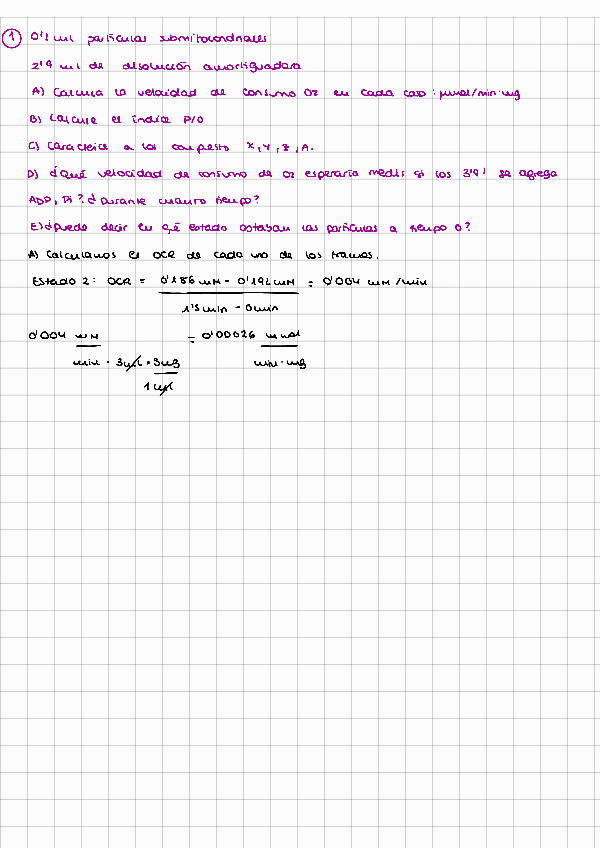 1 0'1 ml particulas submitocondriales
2'9 ml de disolución amortiguadora
A) Calcula la velocidad de consumo O2 en cada caso: µmol/min·mg
B) Calcule el índice P/O
C) Caracterice a los compuesto X, Y, Z, A.
D) ¿Qué velocidad de consumo de O2 esperaría medir si los 3'9' se agrega
ADP, Pi? ¿Durante cuanto tiempo?
E) ¿puede decir en qué estado estaban las partículas a tiempo 0?
A) Calculamos el OCR de cada uno de los tramos.
Estado 2: OCR = 0'186 mM - 0'192 mM = 0'004 mM/min
1'5 min - 0 min
0'004 mM = 0'00026 mmol
min · 3 ml · 3 mg min · mg
1 ml